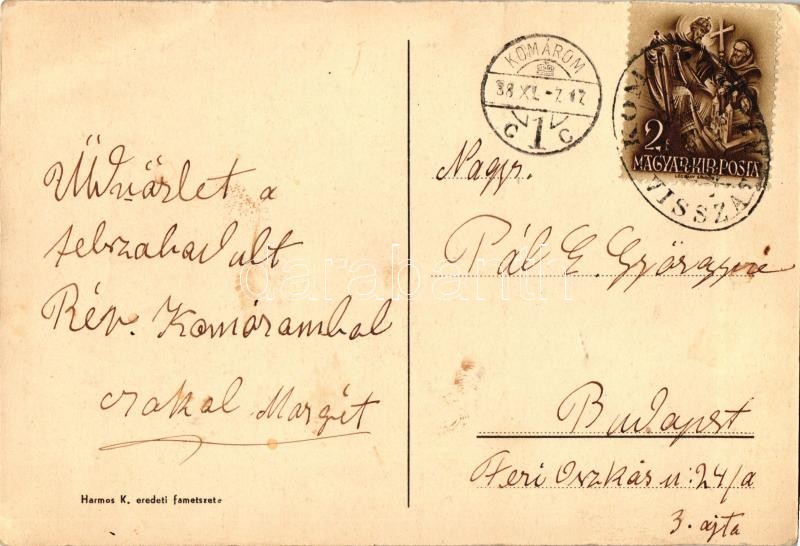 Üdvözlet a
felszabadult
Rév. Komáromból
Czakal Margit
Harmos K. eredeti fametszete
KOMÁROM
38 XI. -7. 17
C 1 C
2 f
MAGYAR·KIR·POSTA
KOM
VISSZA
Nagys.
Pál E. Györgyné
Budapest
Teri Oszkár u: 24/a
3. ajtó
darabanth